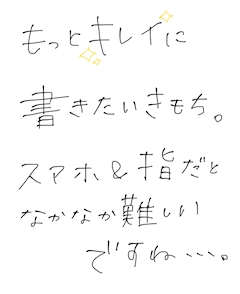 もっとキレイに
書きたいきもち。
スマホ&指だと
なかなか難しい
ですね…。